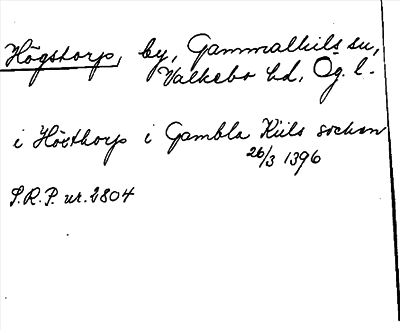 Högstorp, by, Gammalkils sn,
Valkebo hd, Ög. l.
i Høsthorp i Gambla Kiils sochen
26/3 1396
S.R.P. nr. 2804